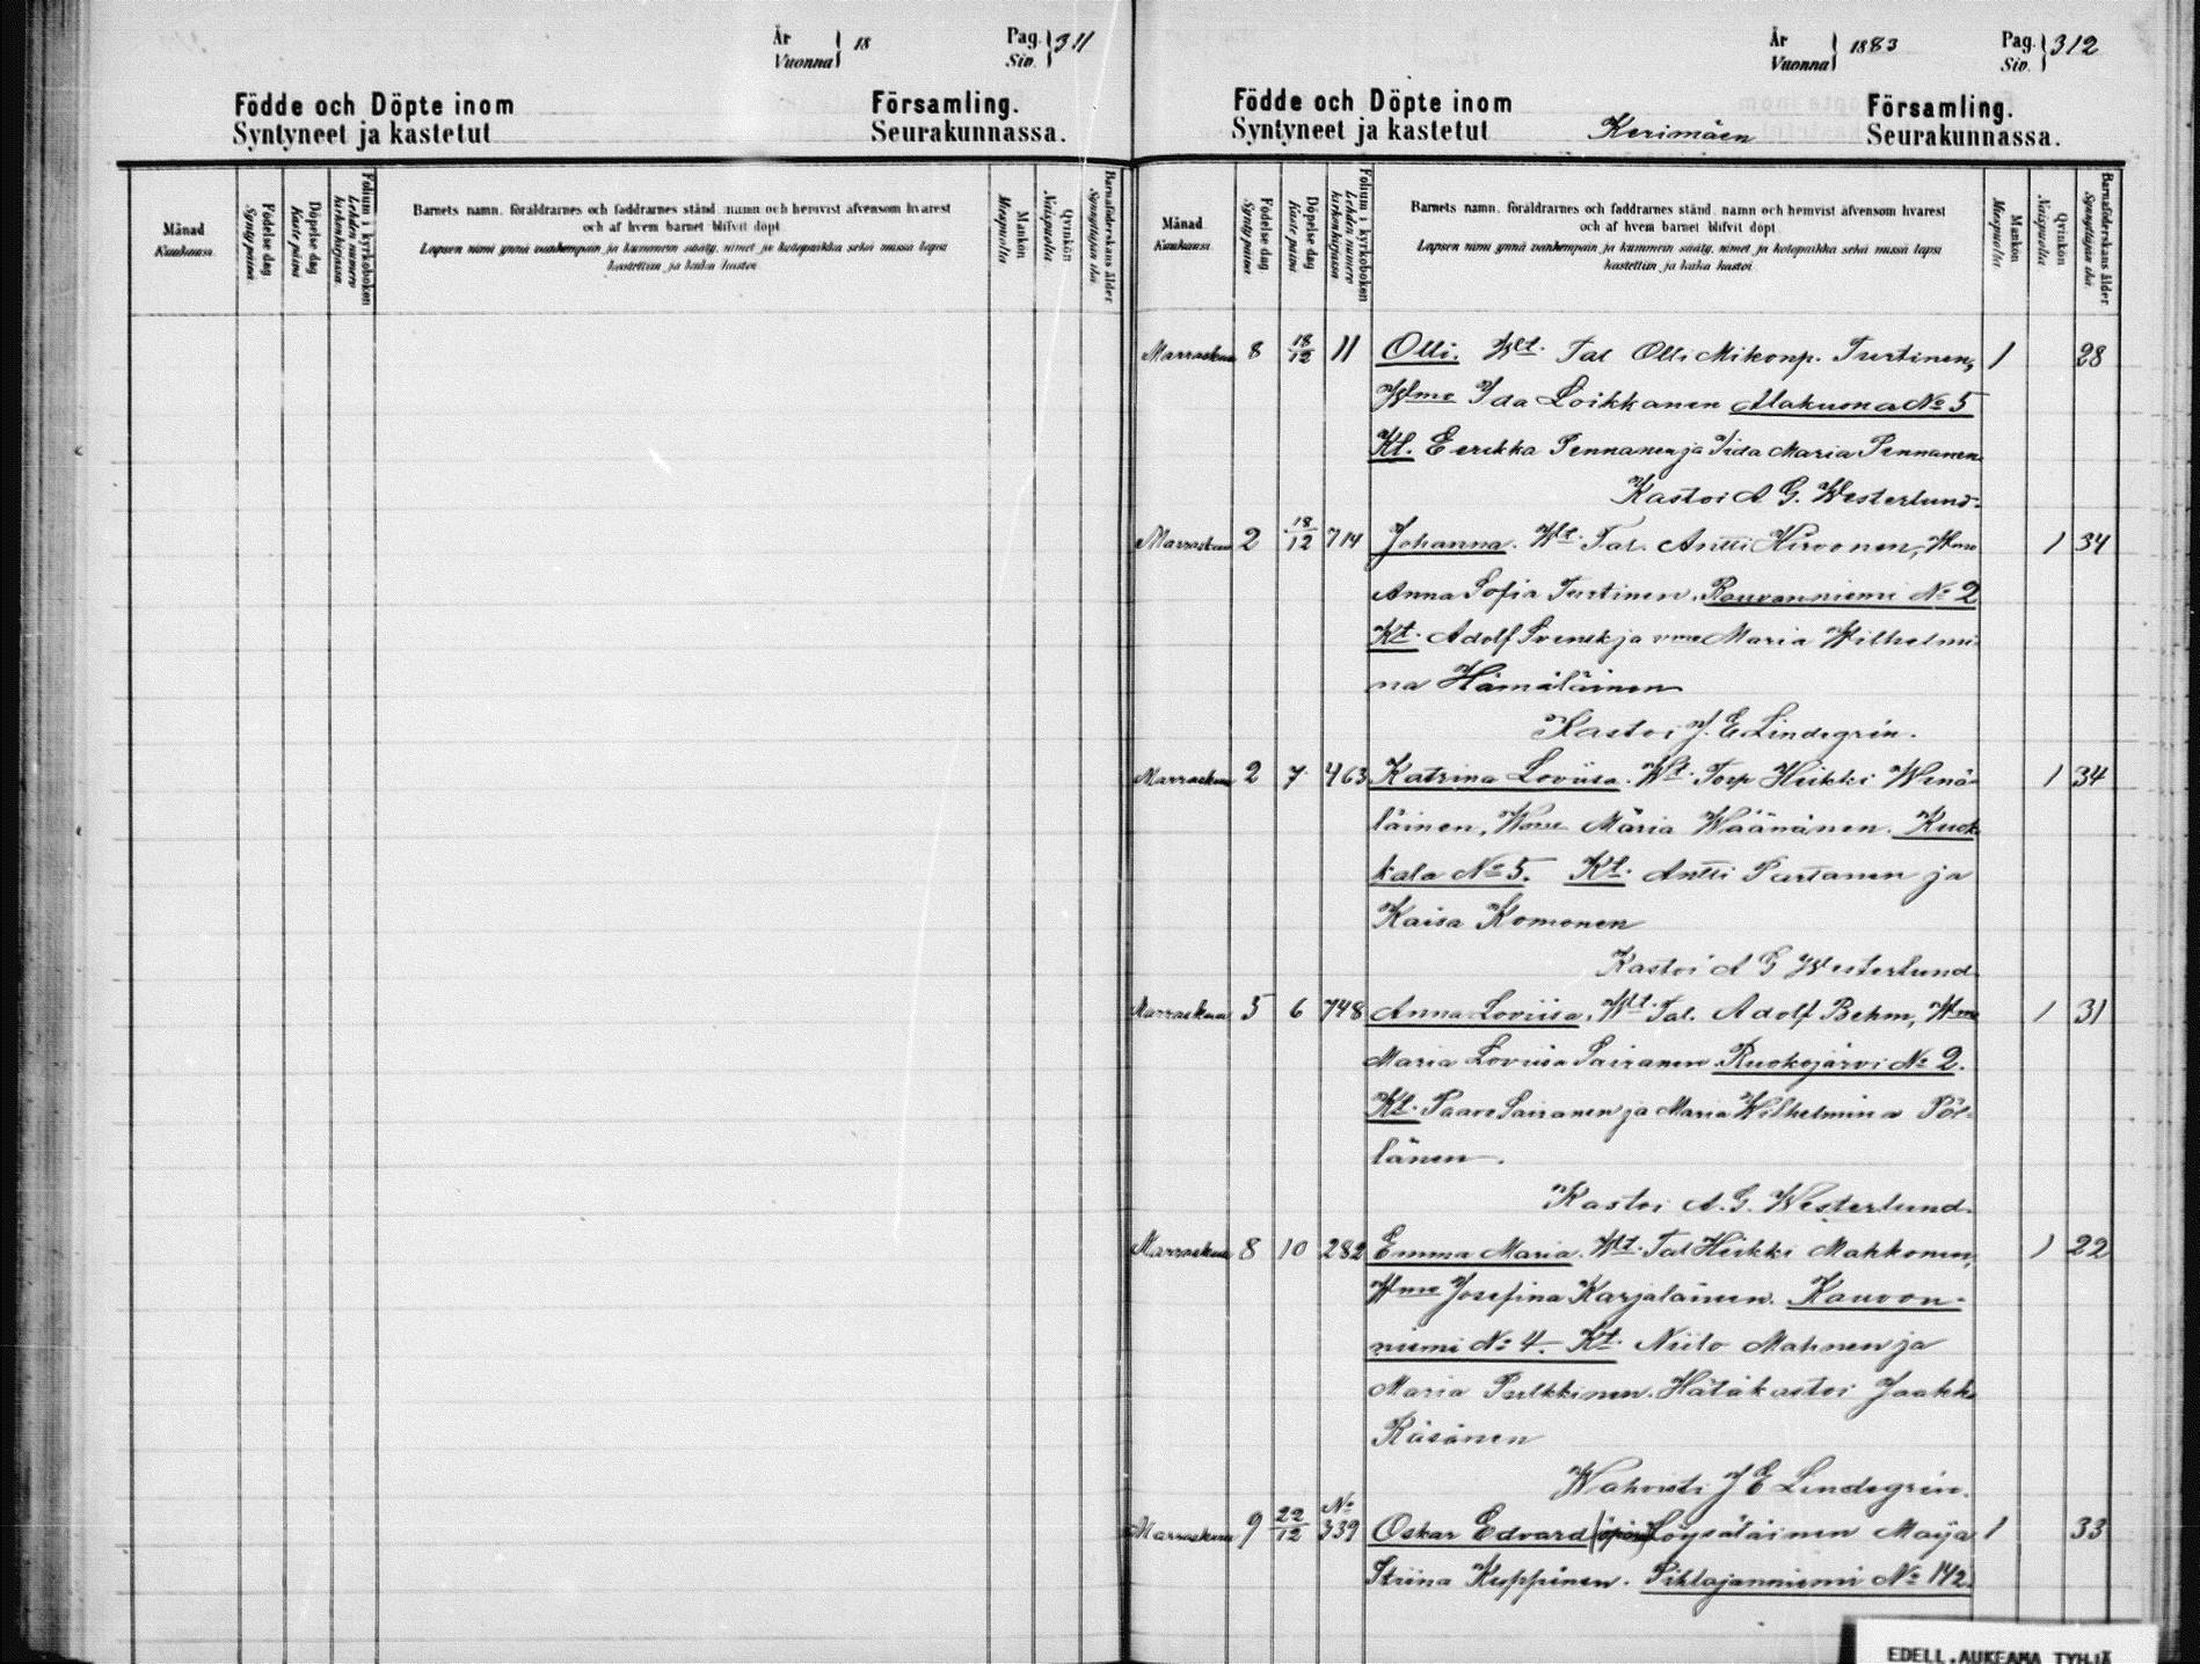 År Vuonna 18
Pag. Siv. 311
Födde och Döpte inom Församling.
Syntyneet ja kastetut Seurakunnassa.
Månad Kuukausi
Födelse dag Syntypäivä
Döpelse dag Kastepäivä
Folium i kyrkoboken Lehden numero kirkonkirjassa
Barnets namn, föräldrarnes och faddrarnes stånd, namn och hemvist äfvensom hvarest
och af hvem barnet blifvit döpt
Lapsen nimi ynnä vanhempain ja kummein sääty, nimet ja kotopaikka sekä missä lapsi
kastettiin ja kuka kastoi
Mankön Miespuolia
Qvinkön Naispuolia
Barnaföderskans ålder Synnyttäjän ikä
År Vuonna 1883
Pag. Siv. 312
Födde och Döpte inom Församling.
Syntyneet ja kastetut Kerimäen Seurakunnassa.
Månad Kuukausi
Födelse dag Syntypäivä
Döpelse dag Kastepäivä
Folium i kyrkoboken Lehden numero kirkonkirjassa
Barnets namn, föräldrarnes och faddrarnes stånd, namn och hemvist äfvensom hvarest
och af hvem barnet blifvit döpt
Lapsen nimi ynnä vanhempain ja kummein sääty, nimet ja kotopaikka sekä missä lapsi
kastettiin ja kuka kastoi
Mankön Miespuolia
Qvinkön Naispuolia
Barnaföderskans ålder Synnyttäjän ikä
Marraskuu 8 18/12 11 Olli. Wt. Tal Olli Mikonp. Turtinen, 1 28
Wmo Ida Loikkanen Alakuona No 5
Kt. Eerikka Pennanen ja Iida Maria Pennanen
Kastoi A G. Westerlund.
Marraskuu 2 18/12 714 Johanna. Wt. Tal. Antti Hirvonen, Wmo 1 34
Anna Sofia Turtinen. Rauvanniemi No 2
Kt. Adolf Svensk ja vmo Maria Wilhelmi-
na Hämäläinen
Kastoi J. E Lindegrén.
Marraskuu 2 7 463 Katrina Loviisa. Wt. Torp Heikki Wenä- 1 34
läinen, Wmo Maria Wäänänen. Ruok-
kala No 5. Kt. Antti Partanen ja
Kaisa Komonen
Kastoi A G Westerlund
Marraskuu 5 6 748 Anna Loviisa. Wt. Tal. Adolf Behm, Wmo 1 31
Maria Loviisa Sairanen. Ruokojärvi No 2.
Kt. Paavo Sairanen ja Maria Wilhelmina Pöl-
länen.
Kastoi A. G. Westerlund.
Marraskuu 8 10 282 Emma Maria. Wt. Tal Heikki Makkonen, 1 22
Wmo Josefina Karjalainen. Kauvon-
niemi No 4. Kt. Niilo Mahnen ja
Maria Pulkkinen. Hätäkastoi Jaakko
Räsänen
Wahvisti J E Lindegrén.
Marraskuu 9 22/12 No 339 Oskar Edvard Löysäläinen Maija 1 33
Striina Kuppinen. Pihlajanniemi No 142.
EDELL. AUKEAMA TYHJÄ